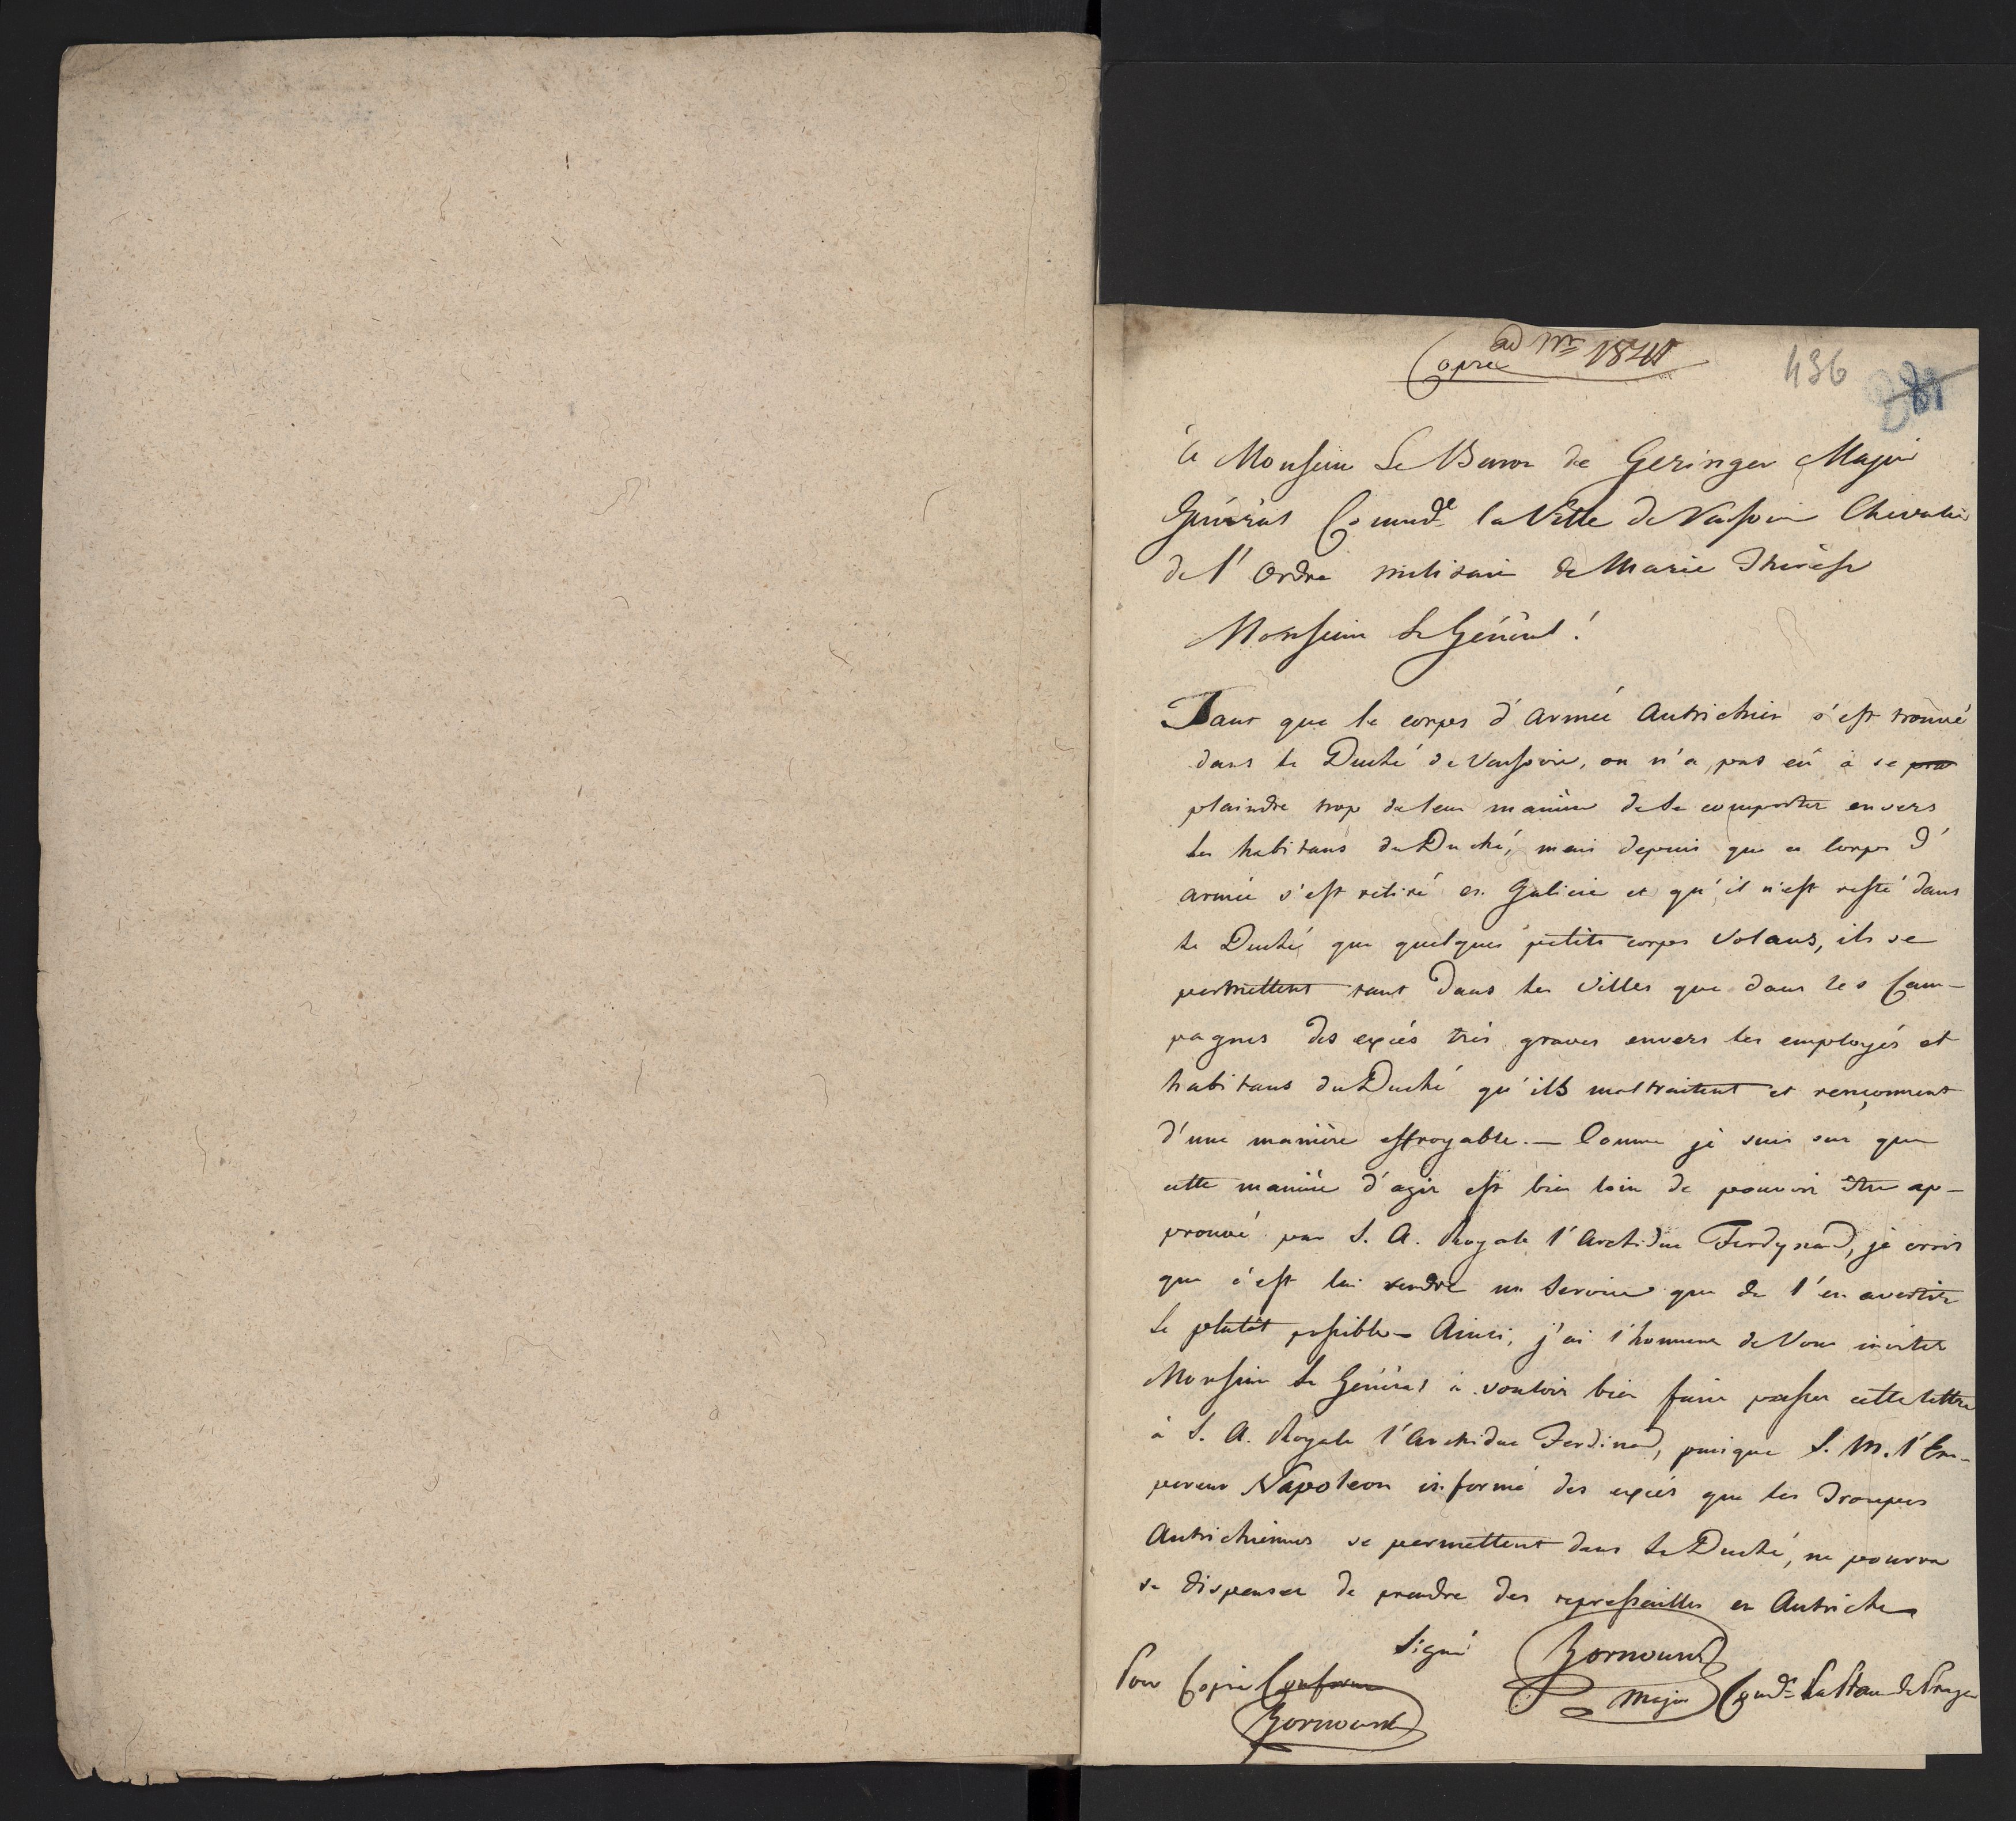 ad Nro 1874
Copie
436
à Monsieur Le Baron de Geringer Major
Général Commdt la Ville de Varsovie Chevalier
de l'Ordre militaire de Marie Thérèse
Monsieur Le Général!
Tant que le corps d'armée Autrichien s'est trouvé
dans le Duché de Varsovie, on n'a pas eû à se
plaindre trop de leur manière de se comporter envers
les habitans du Duché, mais depuis que ce Corps d'
armée s'est retiré en Galicie et qu'il n'est resté dans
le Duché que quelques petits corps volans, ils se
permettent tant dans les Villes que dans les Cam-
pagnes des excés très graves envers les employés et
habitans du Duché qu'ils maltraitent et rençonnent
d'une manière effroyable. — Comme je suis sur que
cette manière d'agir est bien loin de pouvoir être ap-
prouvé par S. A. Royale l'Archiduc Ferdynand, je crois
que c'est lui rendre un Service que de l'en avertir
le plutôt possible — Ainsi, j'ai l'honneur de Vous inviter
Monsieur le Général à vouloir bien faire passer cette lettre
à S. A. Royale l'Archiduc Ferdinand, puisque S. M. l'Em-
pereur Napoleon informé des excés que les Troupes
Autrichiennes se permettent dans le Duché, ne pourra
se dispenser de prendre des repressailles en Autriche
Signé Hornowski
Major Comdt la Place de Praga
Pour Copie Conforme
Hornowski